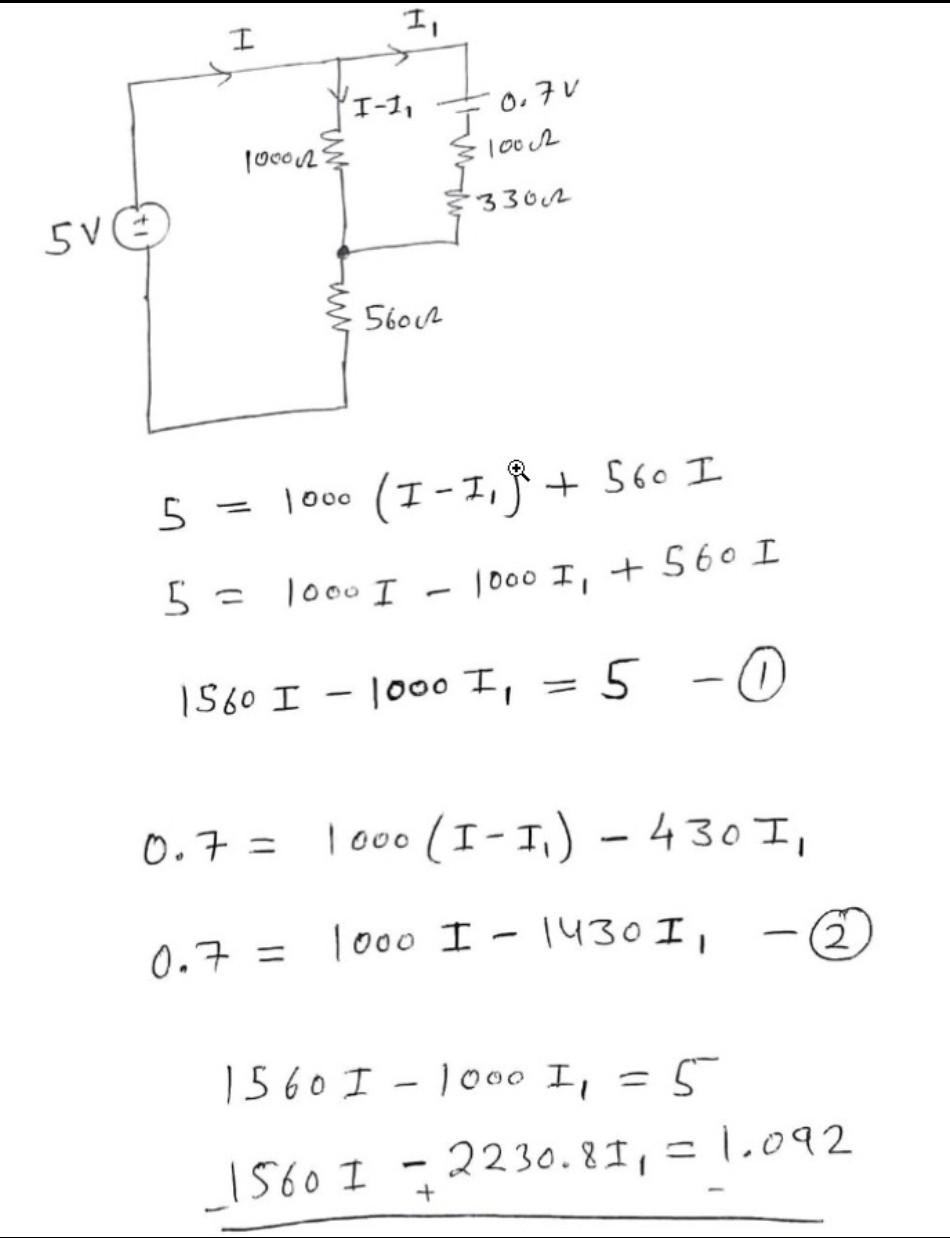 I I₁
I-I₁ 0.7V
1000Ω 100Ω
330Ω
5V ±
560Ω
5 = 1000 (I-I₁) + 560 I
5 = 1000 I - 1000 I₁ + 560 I
1560 I - 1000 I₁ = 5 - ①
0.7 = 1000 (I-I₁) - 430 I₁
0.7 = 1000 I - 1430 I₁ - ②
1560 I - 1000 I₁ = 5
1560 I - 2230.8 I₁ = 1.092
- + -